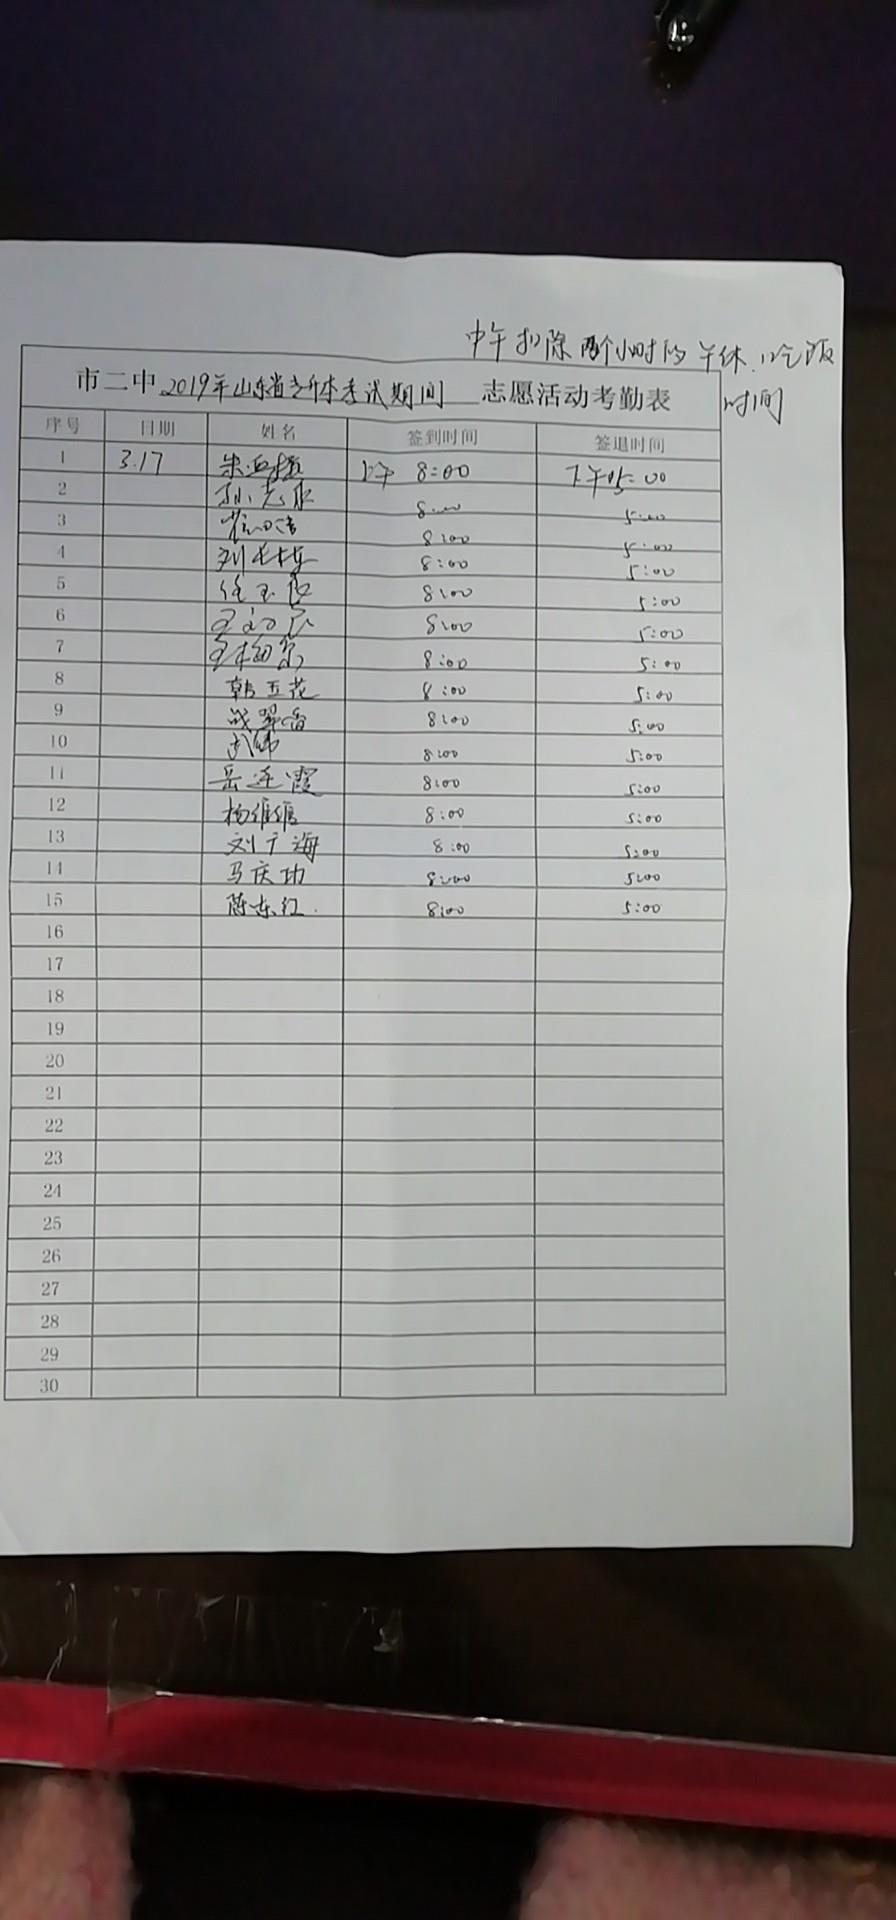 中午扣除两个小时的午休、吃饭
时间
市二中2019年山东省专升本考试期间 志愿活动考勤表
序号 日期 姓名 签到时间 签退时间
1 3.17 上午 8:00 下午 5:00
2 8:00 5:00
3 8:00 5:00
4 8:00 5:00
5 任玉良 8:00 5:00
6 8:00 5:00
7 8:00 5:00
8 韩玉花 8:00 5:00
9 战翠香 8:00 5:00
10 8:00 5:00
11 岳连霞 8:00 5:00
12 杨维维 8:00 5:00
13 刘广海 8:00 5:00
14 马庆功 8:00 5:00
15 陈东红 8:00 5:00
16
17
18
19
20
21
22
23
24
25
26
27
28
29
30